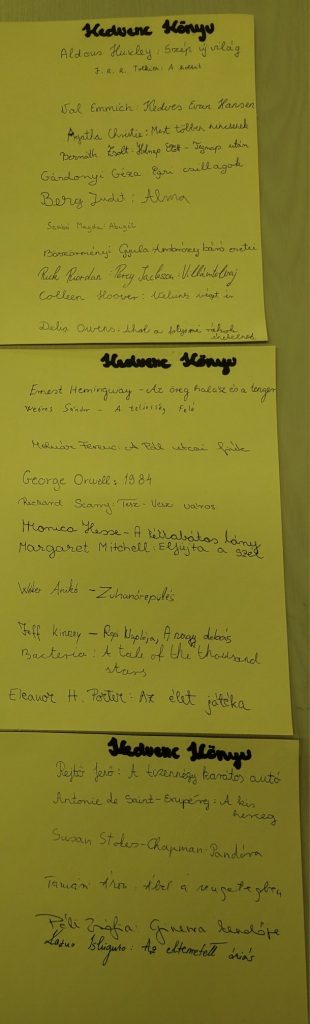 Kedvenc Könyv
Aldous Huxley: Szép új világ
J. R. R. Tolkien: A hobbit
Val Emmich: Kedves Evan Hansen
Agatha Christie: Mert többen nincsenek
Bernáth Zsolt: Holnap Előtt - Tegnap után
Gárdonyi Géza Egri csillagok
Berg Judit: Alma
Szabó Magda: Abigél
Böszörményi Gyula Ambrózy báró esetei
Rick Riordan: Percy Jackson: Villámtolvaj
Colleen Hoover: Velünk véget ér
Delia Owens: Ahol a folyami rákok
énekelnek
Kedvenc Könyv
Ernest Hemingway - Az öreg halász és a tenger
Sándor - A
Molnár Ferenc: A Pál utcai fiúk
George Orwell: 1984
Richard Scarry: Tesz-Vesz város
Monica Hesse - A kékkabátos lány
Margaret Mitchell: Elfújta a szél
Wéber Anikó - Zuhanórepülés
Jeff Kinney - Ropi Naplója, A nagy dobás
Bacteria: A tale of the thousand
stars
Eleanor H. Porter: Az élet játéka
Kedvenc Könyv
Rejtő Jenő: A tizennégy karátos autó
Antonie de Saint-Exupéry: A kis
herceg
Susan Stokes-Chapman: Pandóra
Tamási Áron: Ábel a rengetegben
Páli Zsófia: Ginevra kendője
Kazuo Ishiguro: Az eltemetett óriás